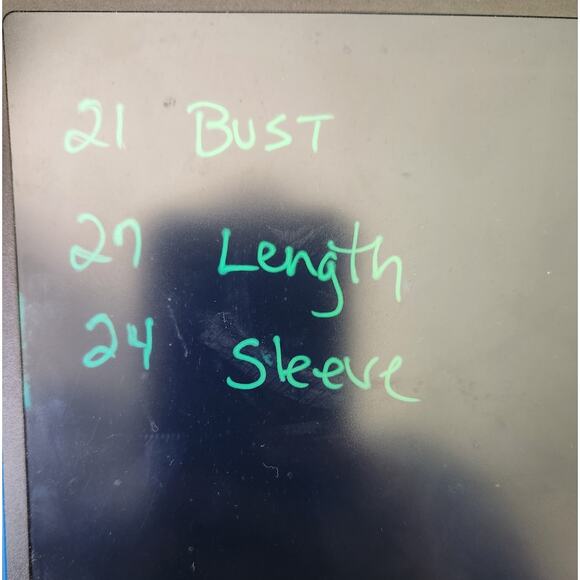 21 BUST
27 Length
24 Sleeve